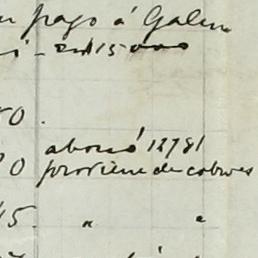 pago á Galen
15000
0.
abonó 12781
0 proviene de cobros
15. " "